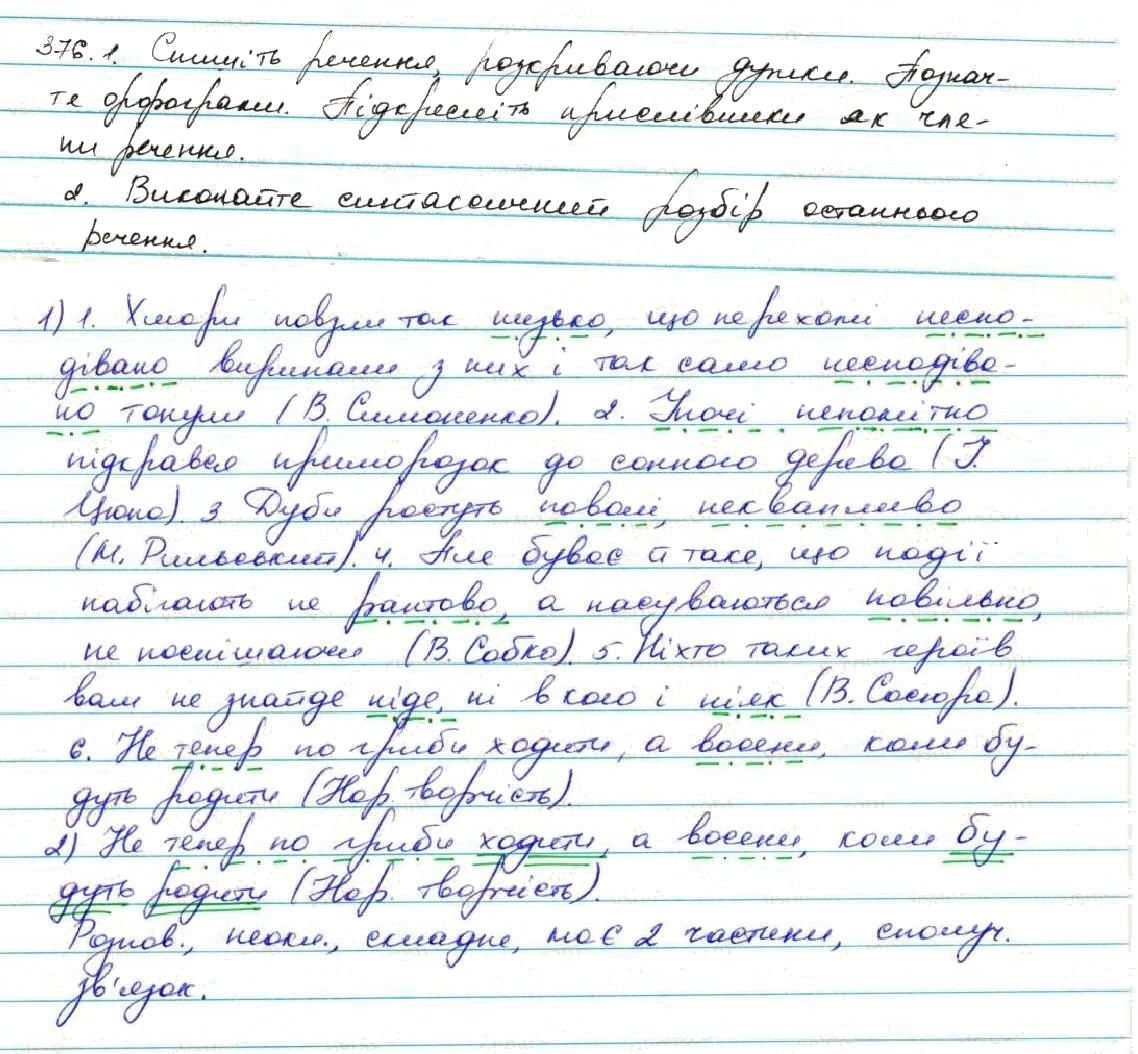 376. 1. Спишіть речення, розкриваючи дужки. Познач-
те орфограми. Підкресліть прислівники як чле-
ни речення.
2. Виконайте синтаксичний розбір останнього
речення.
1) 1. Хмари повзли так низько, що перехожі неспо-
дівано виринали з них і так само несподіва-
но тонули (В. Симоненко). 2. Уночі непомітно
підкрався приморозок до сонного дерева (І.
Цюпа). 3 Дуби ростуть поволі, неквапливо
(М. Рильський). 4. Але буває й таке, що події
набігають не раптово, а насуваються повільно,
не поспішаючи (В. Собко). 5. Ніхто таких героїв
вам не знайде ніде, ні в кого і ніяк (В. Сосюра).
6. Не тепер по гриби ходити, а восени, коли бу-
дуть родити (Нар. творчість).
2) Не тепер по гриби ходити, а восени, коли бу-
дуть родити (Нар. творчість).
Розпов., неокл., складне, має 2 частини, сполуч.
зв'язок.